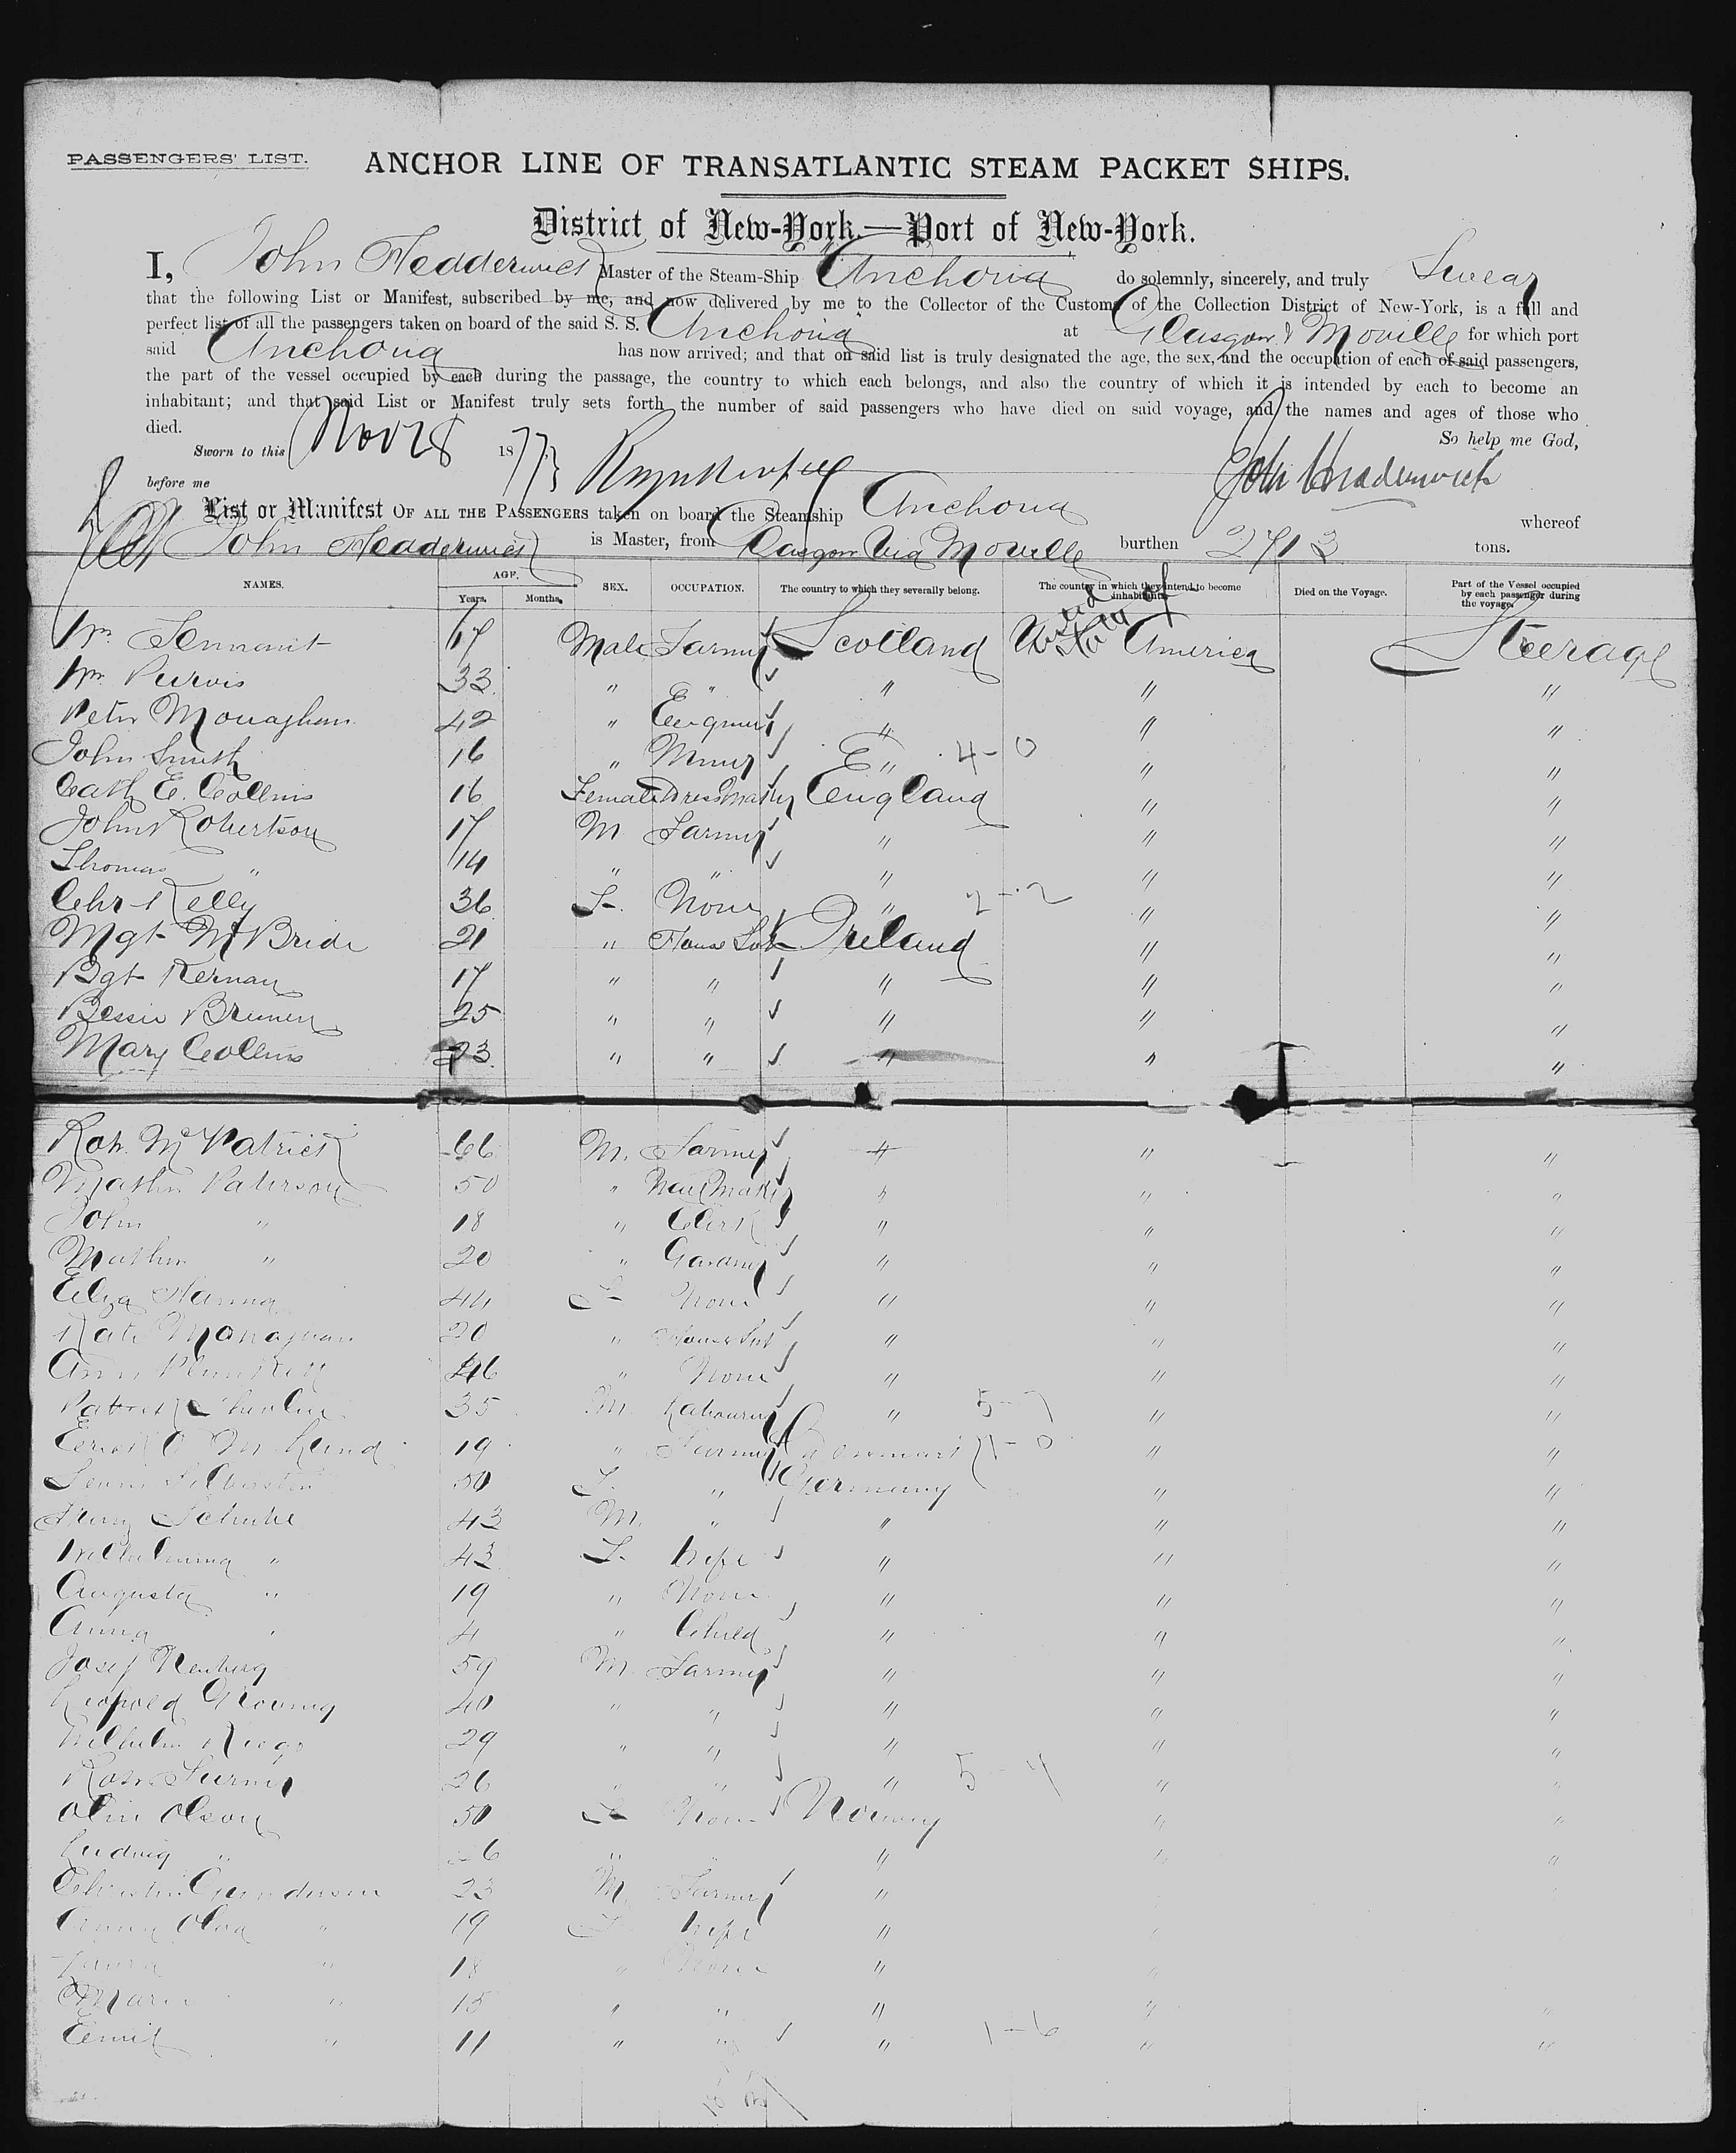 PASSENGERS' LIST.
ANCHOR LINE OF TRANSATLANTIC STEAM PACKET SHIPS.
District of New-York.—Port of New-York.
I, John Hedderwick Master of the Steam-Ship Anchoria do solemnly, sincerely, and truly Swear
that the following List or Manifest, subscribed by me, and now delivered by me to the Collector of the Customs of the Collection District of New-York, is a full and
perfect list of all the passengers taken on board of the said S. S. Anchoria at Glasgow & Moville for which port
said Anchoria has now arrived; and that on said list is truly designated the age, the sex, and the occupation of each of said passengers,
the part of the vessel occupied by each during the passage, the country to which each belongs, and also the country of which it is intended by each to become an
inhabitant; and that said List or Manifest truly sets forth the number of said passengers who have died on said voyage, and the names and ages of those who
died.
So help me God,
Sworn to this Nov 28 1877
before me
John Hedderwick
List or Manifest OF ALL THE PASSENGERS taken on board the Steamship Anchoria whereof
John Hedderwick is Master, from Glasgow via Moville burthen 2713 tons.
NAMES. AGE. Years. Months. SEX. OCCUPATION. The country to which they severally belong. The country in which they intend to become inhabitants. Died on the Voyage. Part of the Vessel occupied by each passenger during the voyage.
Wm Tennant 17 Male Farmer Scotland United States of America Steerage
Wm Purvis 33 " " " " "
Peter Monaghan 42 " Engineer " " "
John Smith 16 " Miner " 4-0 " "
Cath E. Collins 16 Female Dress Maker England " "
John Robertson 17 M Farmer " " "
Thomas " 14 " " " " "
Chr Kelly 36 F. None " 2-2 " "
Mgt McBride 21 " House Svt Ireland " "
Bgt Kernan 17 " " " " "
Bessie 25 " " " " "
Mary Collins 23 " " " " "
Rob. McPatrick 66 M. Farmer " " "
Mathw Paterson 50 " " " "
John " 18 " Clerk " " "
Mathw " 20 " Gardner " " "
Eliza Hanna 44 F None " " "
Kate 20 " House Svt " " "
Ann Plunkett 46 " None " " "
Patrick 35 M Labourer " 5-7 " "
19 " Farmer Denmark 1-0 " "
50 F. " Germany " "
Schulze 43 M. " " " "
Wilhelmina " 43 F. Wife " " "
Augusta " 19 " None " " "
Anna " 4 " Child " " "
Josef Neuberg 59 M Farmer " " "
Leopold 40 " " " " "
Wilhelm 29 " " " " "
26 " " " 5-4 " "
Olin Olson 50 F None Norway " "
Ludvig " 6 " " " "
Gunderson 23 M Farmer "
19 F Wife "
Laura " 18 " None " "
Marie " 15 " " " " "
Emil " 11 " " " 1-6 " "